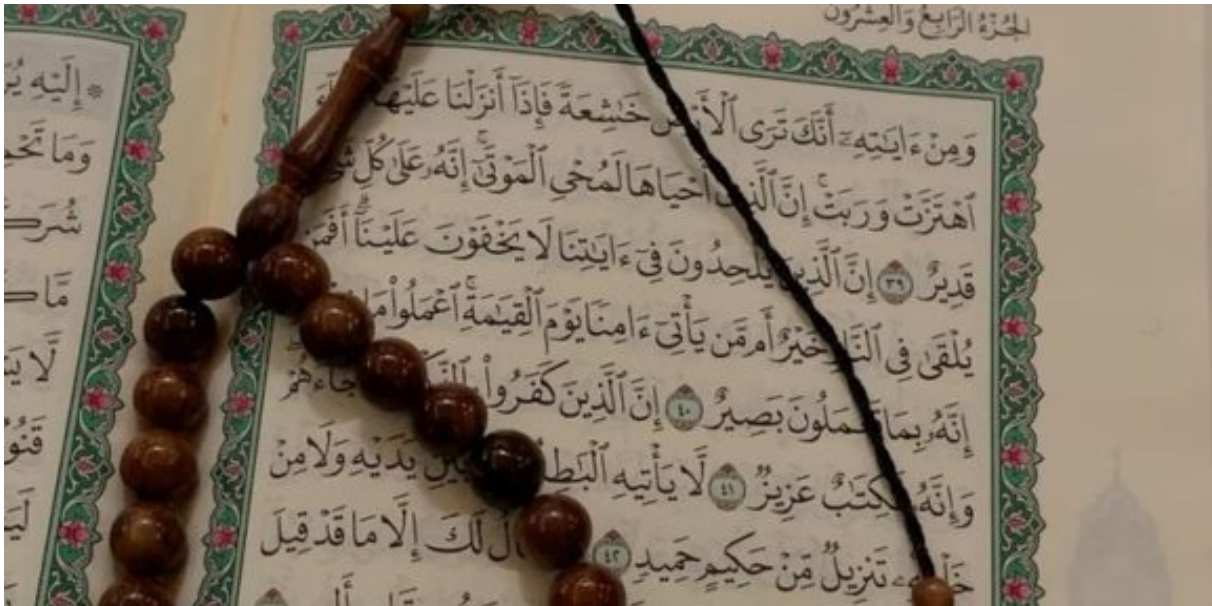 الجُزْءُ الرَّابِعُ وَالْعِشْرُونَ
وَمِنْ ءَايَٰتِهِۦٓ أَنَّكَ تَرَى ٱلْأَرْضَ خَٰشِعَةً فَإِذَآ أَنزَلْنَا عَلَيْهَا
ٱهْتَزَّتْ وَرَبَتْ ۚ إِنَّ ٱلَّذِىٓ أَحْيَاهَا لَمُحْىِ ٱلْمَوْتَىٰٓ ۚ إِنَّهُۥ عَلَىٰ كُلِّ شَىْءٍ
قَدِيرٌ ٣٩ إِنَّ ٱلَّذِينَ يُلْحِدُونَ فِىٓ ءَايَٰتِنَا لَا يَخْفَوْنَ عَلَيْنَآ ۗ أَفَمَن
يُلْقَىٰ فِى ٱلنَّارِ خَيْرٌ أَم مَّن يَأْتِىٓ ءَامِنًا يَوْمَ ٱلْقِيَٰمَةِ ۚ ٱعْمَلُوا۟ مَا
إِنَّهُۥ بِمَا تَعْمَلُونَ بَصِيرٌ ٤٠ إِنَّ ٱلَّذِينَ كَفَرُوا۟ جَآءَهُمْ
وَإِنَّهُۥ لَكِتَٰبٌ عَزِيزٌ ٤١ لَّا يَأْتِيهِ ٱلْبَٰطِلُ بَيْنِ يَدَيْهِ وَلَا مِنْ
تَنزِيلٌ مِّنْ حَكِيمٍ حَمِيدٍ ٤٢ لَكَ إِلَّا مَا قَدْ قِيلَ
إِلَيْهِ
وَمَا
لَّا